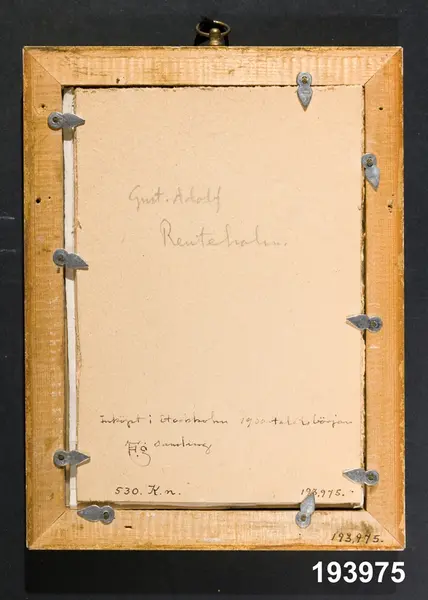 Gust. Adolf
Reuterholm.
Inköpt i Stockholm 1900 talets början
Samling
530. K.n. 193,975.
193,975.
193975